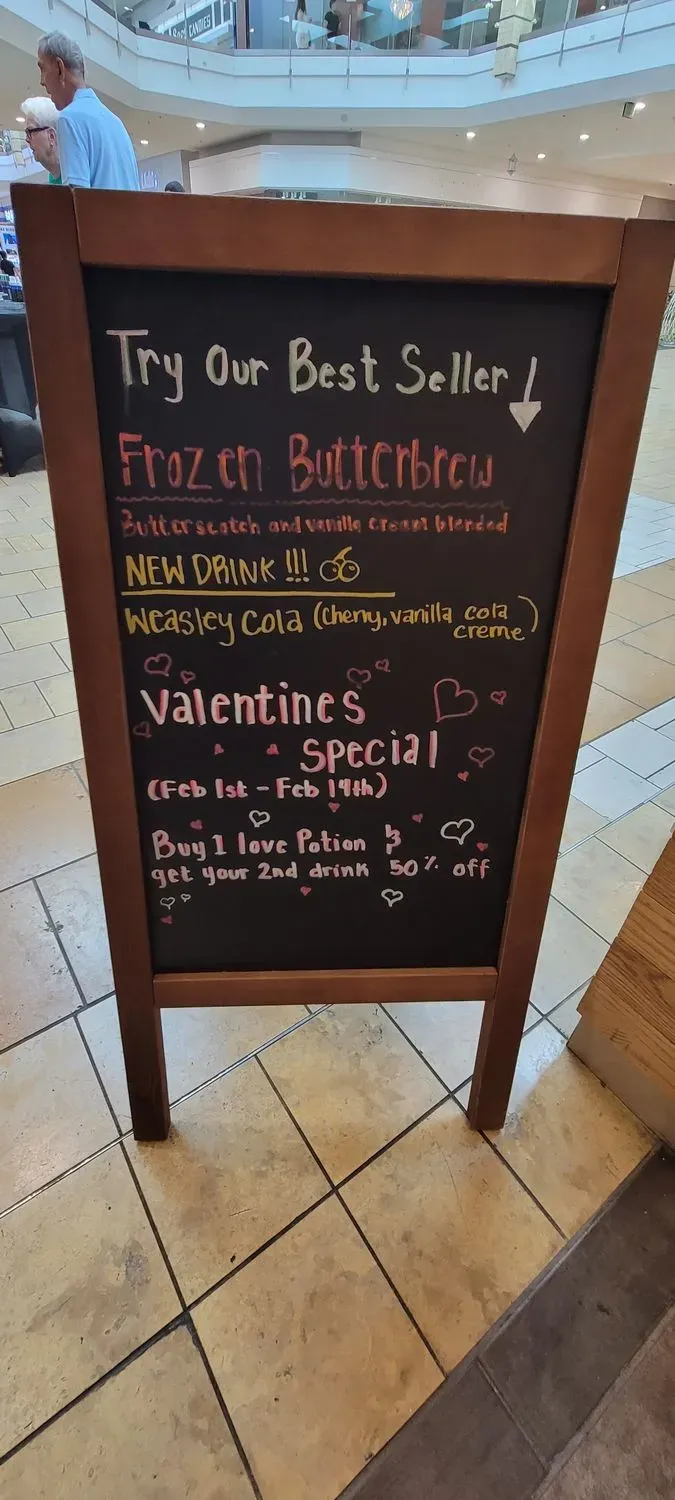 CANDIES
Try Our Best Seller
Frozen Butterbrew
Butterscotch and vanilla cream blended
NEW DRINK !!!
Weasley Cola (cherry, vanilla cola
creme)
Valentines
special
(Feb 1st - Feb 14th)
Buy 1 love Potion &
get your 2nd drink 50% off